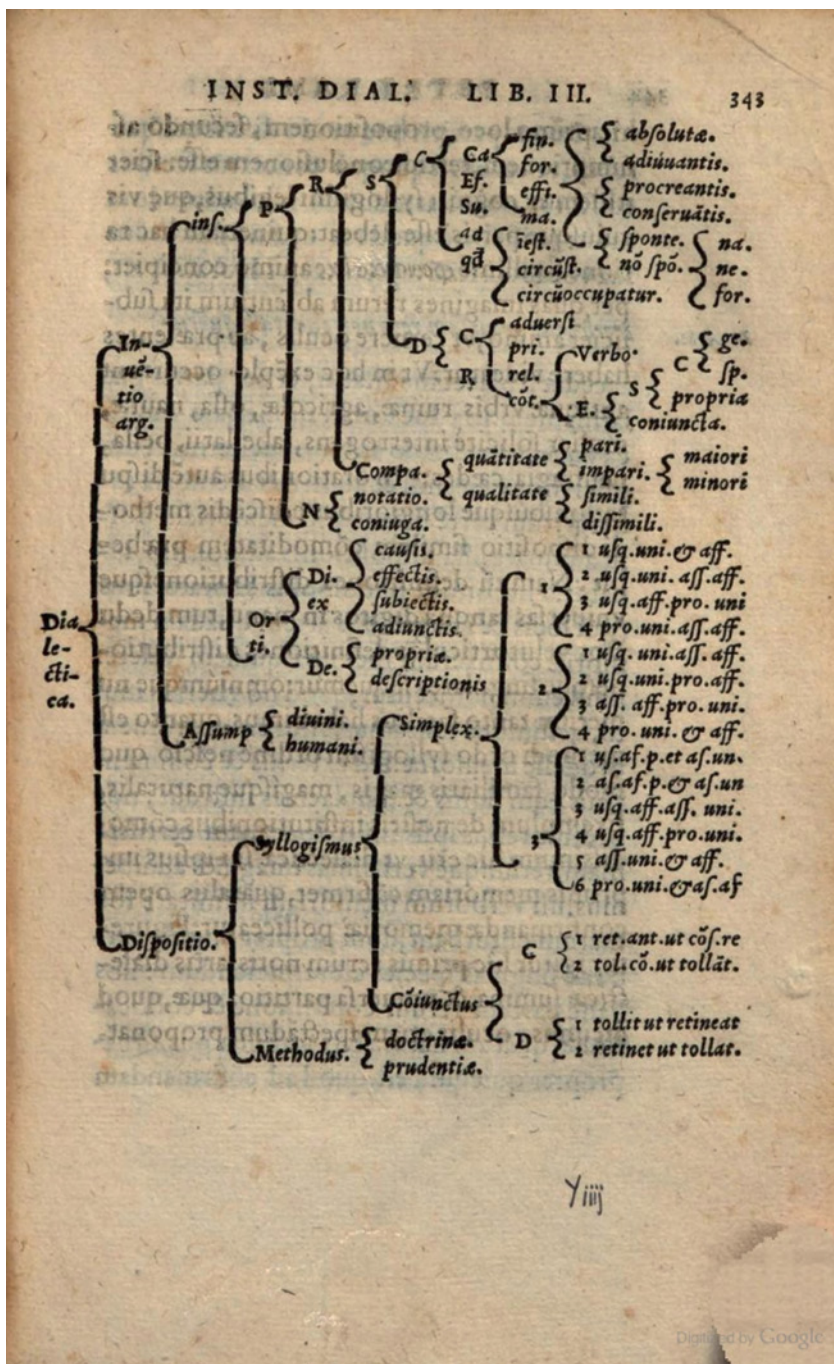 INST. DIAL. LIB. III. 343
Dialectica.
Inuētio arg.
inſ.
P
R
S
C
Ca
Ef.
Su.
fin.
for.
effi.
ma.
abſolutæ.
adiuuantis.
procreantis.
conſeruātis.
ſponte.
nō ſpō.
na.
ne.
for.
ad
qd̄
īeſt.
circūſt.
circūoccupatur.
D
C
R
aduerſi
pri.
rel.
cōt.
Verbo.
E.
S
C
ge.
ſp.
propria
coniuncta.
Compa.
quātitate
qualitate
pari.
impari.
maiori
minori
ſimili.
diſſimili.
N
notatio.
coniuga.
Orti.
Di.
ex
cauſis.
effectis.
ſubiectis.
adiunctis.
De.
propriæ.
deſcriptionis
Aſſump
diuini.
humani.
Diſpoſitio.
Syllogiſmus
Simplex.
1
1 uſq.uni.& aff.
2 uſq.uni.aſſ.aff.
3 uſq.aff.pro.uni
4 pro.uni.aſſ.aff.
2
1 uſq.uni.aſſ.aff.
2 uſq.uni.pro.aff.
3 aſſ.aff.pro.uni.
4 pro.uni.& aff.
3
1 uſ.af.p.et aſ.un.
2 aſ.af.p.& aſ.un
3 uſq.aff.aſſ.uni.
4 uſq.aff.pro.uni.
5 aſſ.uni.& aff.
6 pro.uni.& aſ.af
Cōiunctus
C
1 ret.ant.ut cōſ.re
2 tol.cō.ut tollāt.
D
1 tollit ut retineat
2 retinet ut tollat.
Methodus.
doctrinæ.
prudentiæ.
Yiiij
Digitized by Google